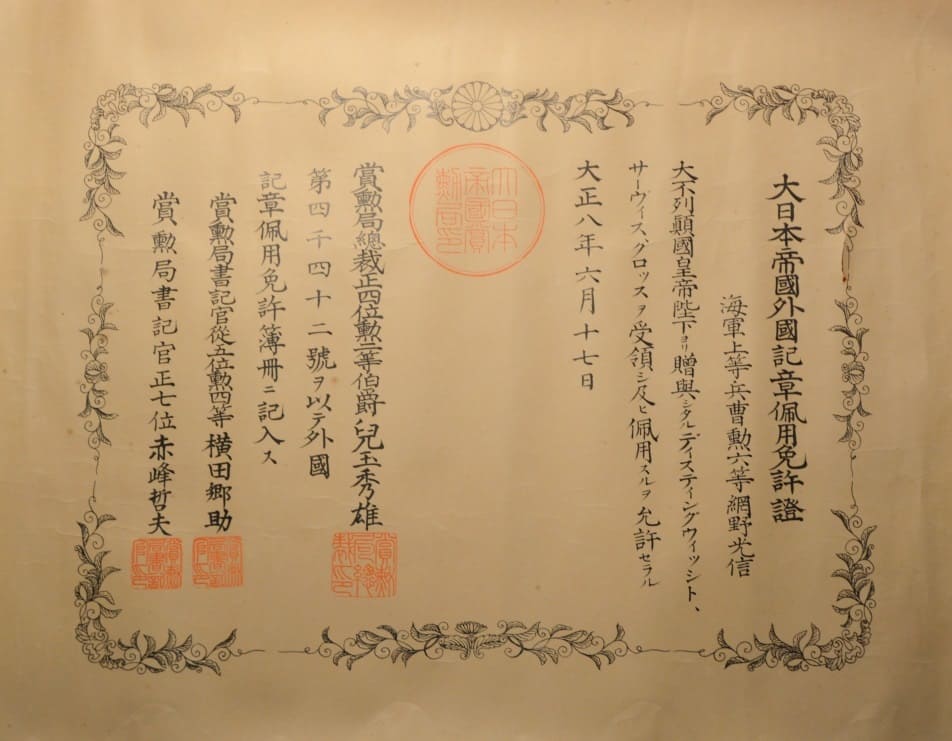 大日本帝國外國記章佩用免許證
海軍上等兵曹勲六等網野光信
大不列顚國皇帝陛下ヨリ贈與シタルディスティングウィッシト、
サーヴィス、クロッスヲ受領シ及ヒ佩用スルヲ允許セラル
大正八年六月十七日
大日本
帝國賞
勲局印
賞勲局總裁正四位勲二等伯爵兒玉秀雄
第四千四十二號ヲ以テ外國
記章佩用免許簿冊ニ記入ス
賞勲局書記官從五位勲四等橫田郷助
賞勲局書記官正七位赤峰哲夫